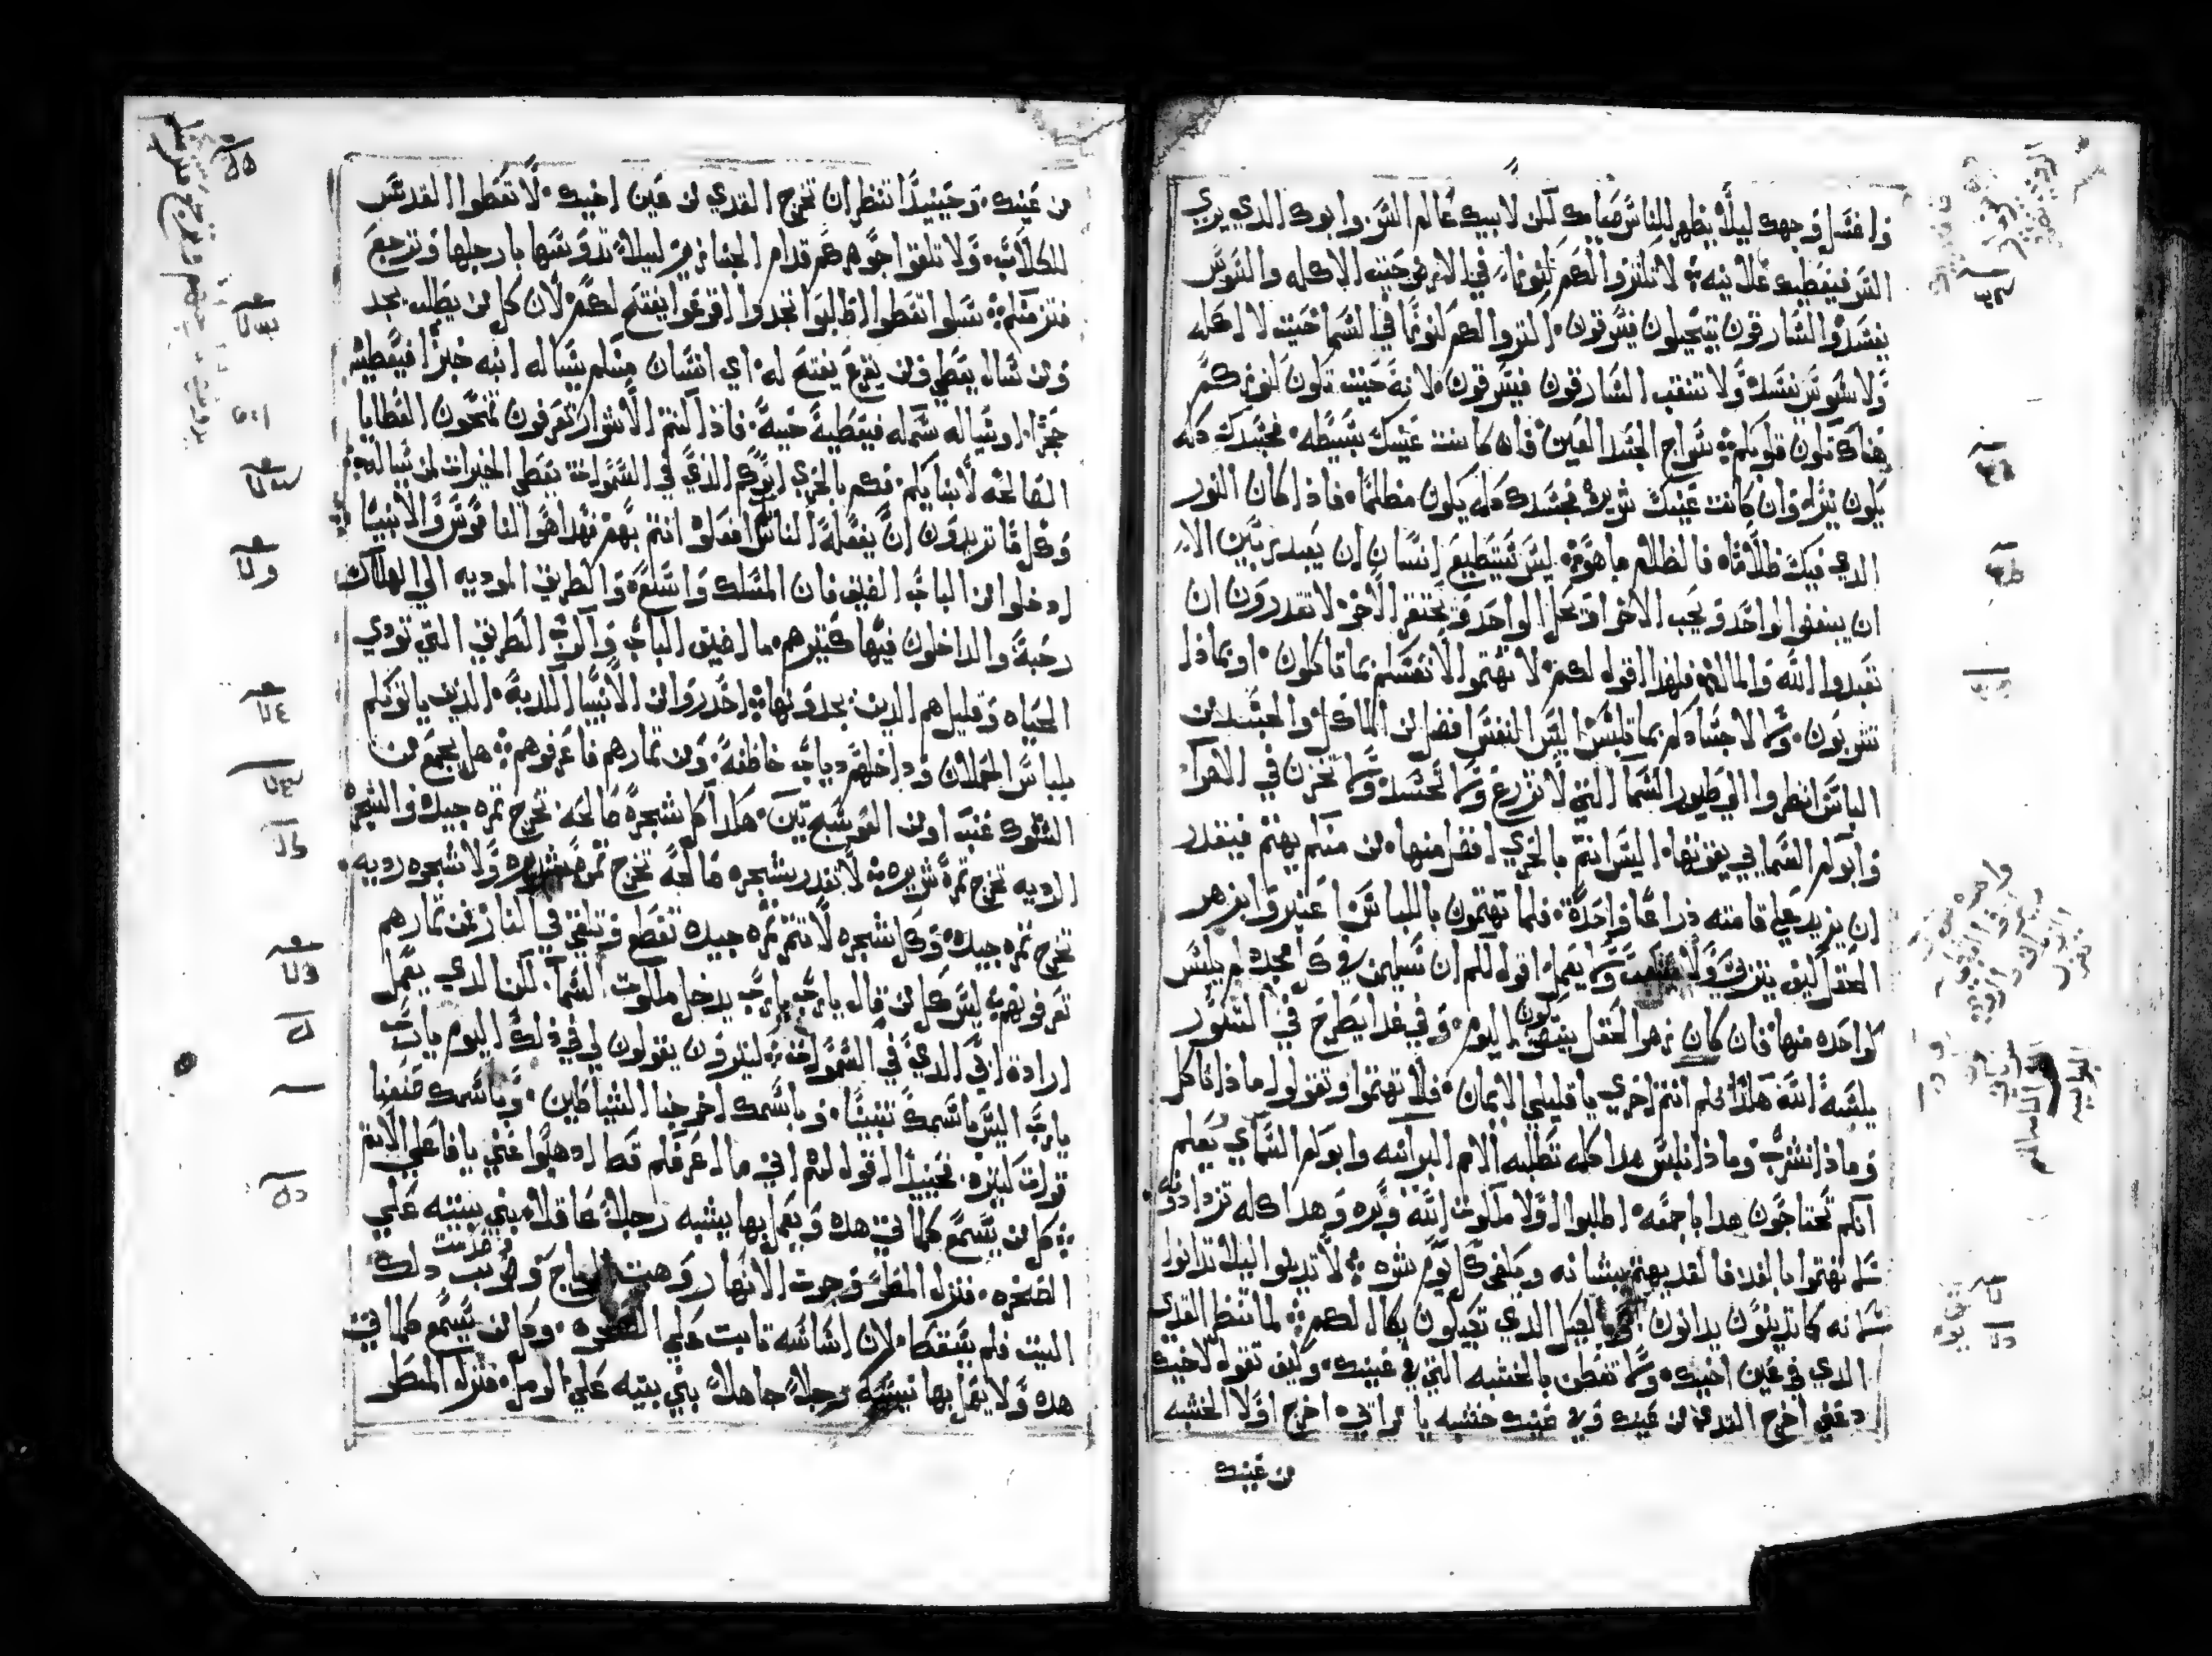 واغسل وجهك ليلا يظهر للناس صيامك لكن لابيك عالم السر وابوك الذي يري
السر فيعطيك علانيه لا تكنزوا لكم كنوزا في الارض حيث الاكله والسوس
يفسد والسارقون يتحيلون فيسرقون اكنزوا لكم كنوزا في السما حيث لا اكله
ولا سوس يفسد ولا تنقب السارقون فيسرقون لانه حيث تكون كنوزكم
هناك تكون قلوبكم سراج الجسد العين فان كانت عينك بسيطه فجسدك كله
يكون نيرا وان كانت عينك شريره فجسدك كله يكون مظلما فاذا كان النور
الذي فيك ظلاما فالظلام ما هو ليس يستطيع انسان ان يعبد ربين الا
ان يبغض الواحد ويحب الاخر او يجل الواحد ويحتقر الاخر لا تقدرون ان
تعبدوا الله والمال فلهذا اقول لكم لا تهتموا لانفسكم بما تاكلون او بماذا
تشربون ولا لاجسادكم بما تلبس اليس النفس افضل من الماكل والجسد من
الباس انظروا الي طيور السما التي لا تزرع ولا تحصد ولا تخزن في الاهرا
وابوكم السماي يقوتها اليس انتم بالحري افضل منها من منكم يهتم فيقدر
ان يزيد علي قامته ذراعا واحدة فلما تهتمون باللباس اعتبروا بزهر
الحقل كيف يتربي ولا يتعب ولا يعمل اقول لكم ان سليمن في كل مجده لم يلبس
كواحده منها فان كان زهر الحقل يكون اليوم وفي غدا يطرح في التنور
يلبسه الله هكذا فكم انتم احري يا قليلي الايمان فلا تهتموا وتقولوا ماذا ناكل
وماذا نشرب وماذا نلبس هذا كله تطلبه الامم البرانيه وابوكم السماي يعلم
انكم تحتاجون هذا باجمعه اطلبوا اولا ملكوت الله وبره وهذا كله تزدادونه
لا تهتموا بالغد فالغد يهتم بشانه ويكفي كل يوم شره لا تدينوا ليلا تدانوا
لانه كما تدينون تدانون وبالكيل الذي تكيلون يكال لكم لما تنظر القدي
الذي في عين اخيك ولا تفطن بالخشبه التي في عينك وكيف تقول لاخيك
دعني اخرج القدي من عينك وفي عينك خشبه يا مراتي اخرج اولا الخشبه
من عينك
من عينك وحينيذا تنظر ان تخرج القدي من عين اخيك لا تعطوا القدس
للكلاب ولا تلقوا جوهركم قدام الخنازير ليلا تدوسها بارجلها وترجع
فتزمنكم سلوا تعطوا اطلبوا تجدوا اقرعوا يفتح لكم لان كل من يطلب يجد
ومن سال يعطي ومن يقرع يفتح له اي انسان منكم يساله ابنه خبزا فيعطيه
حجرا او يساله سمكه فيعطيه حيه فاذا كنتم الاشرار تعرفون تمنحون العطايا
الصالحه لابنايكم فكم بالحري ابوكم الذي في السموات يعطي الخيرات لمن يساله
وكل ما تريدون ان يفعله الناس افعلوا انتم بهم فهذا هو الناموس والانبيا
ادخلوا من الباب الضيق فان المسلك واسع والطريق الموديه الي الهلاك
رحبة والداخلون فيها كثيرهم ما اضيق الباب واكرب الطريق التي تودي
الحياه وقليل هم الذين يجدونها احذروا من الانبيا الكذبة الذين ياتونكم
بلباس الحملان وداخلهم دياب خاطفة ومن ثمارهم فاعرفوهم هل يجمع من
الشوك عنب او من العوسج تين هكذا كل شجرة صالحه تخرج ثمره جيده والشجره
الرديه تخرج ثمرة شريره لا تقدر شجره صالحة تخرج ثمره شريره ولا شجره رديه
تخرج ثمره جيده وكل شجره لا تثمر ثمره جيده تقطع وتلقي في النار فمن ثمارهم
تعرفونهم ليس كل من قال يا رب يا رب يدخل ملكوت السما لكن الذي يعمل
ارادة ابي الذي في السموات كثيرون يقولون لي في ذلك اليوم يارب
يا رب اليس باسمك تنبينا وباسمك اخرجنا الشياطين وباسمك صنعنا
قوات كثيره فحينيذ اقول لهم اني ما اعرفكم قط اذهبوا عني يا فاعلي الاثم
كل من يسمع كلماتي هذه ويعمل بها يشبه رجلا عاقلا بني بيته علي
الصخره فنزل المطر وجرت الانهار وهبت الرياح وضربت ذلك
البيت فلم يسقط لان اساسه ثابت علي الصخره وكل من يسمع كلماتي
هذه ولا يعمل بها يشبه رجلا جاهلا بني بيته علي الرمل فنزل المطر